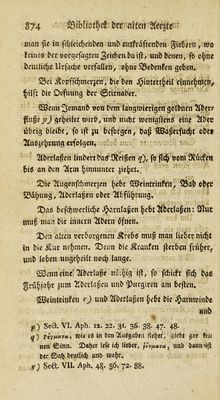 874 Bibliothek der alten Aerzte
man sie in schleichenden und auskräftenden Fiebern, wo
keines der vorgesagten Zeichen da ist, und denen, so ohne
deutliche Ursache verfallen, ohne Bedenken geben.
Bei Kopfschmerzen, die den Hintertheil einnehmen,
hilft die Oeffnung der Stirnader.
Wenn Jemand von dem langwierigen goldnen Ader-
fluße p) geheilet wird, und nicht wenigstens eine Ader
übrig bleibe, so ist zu besorgen, daß Wassersucht oder
Auszehrung erfolgen.
Aderlaßen lindert das Reißen q), so sich vom Rücken
bis an den Arm hinunter ziehet.
Die Augenschmerzen hebt Weintrinken, Bad oder
Bähung, Aderlaßen oder Abführung.
Das beschwerliche Harnlaßen hebt Aderlaßen: Nur
muß man die innern Adern öfnen.
Den alten verborgenen Krebs muß man lieber nicht
in die Kur nehmen. Denn die Kranken sterben früher,
und leben ungeheilt noch lange.
Wenn eine Aderlaße nöthig ist, so schickt sich das
Frühjahr zum Aderlaßen und Purgiren am besten.
Weintrinken r) und Aderlaßen hebt die Harnwinde
und
p) Sect. VI. Aph. 12. 22. 31. 36. 38. 47. 48.
q) ῥέγματα, wie es in den Ausgaben stehet, giebt gar kei-
nen Sinn. Daher lese ich lieber, ῥεύματα, und dann ist
der Satz deutlich und wahr.
r) Sect. VII. Aph. 48. 56. 72. 88.